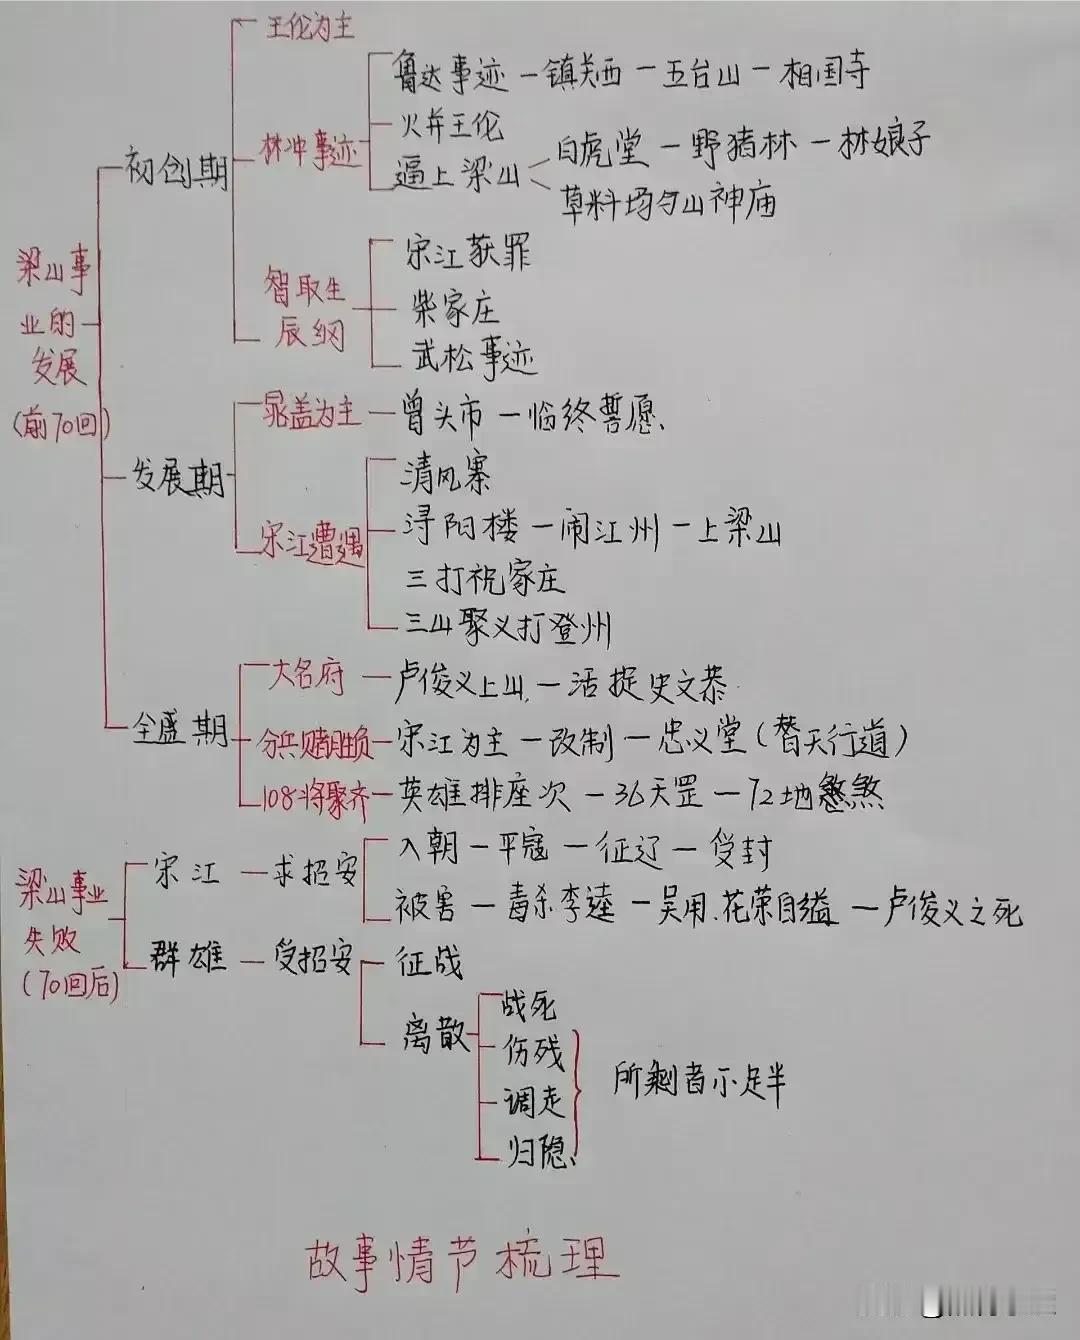 王伦为主
鲁达事迹一镇关西一五台山一相国寺
林冲事迹
火并王伦
逼上梁山
白虎堂一野猪林一林娘子
草料场与山神庙
初创期
智取生
辰纲
宋江获罪
柴家庄
武松事迹
梁山事
业的
发展
(前70回)
晁盖为主一曾头市一临终誓愿、
发展期
宋江遭遇
清风寨
浔阳楼一闹江州一上梁山
三打祝家庄
三山聚义打登州
大名府一卢俊义上山、一活捉史文恭
全盛期
分兵赌胜负一宋江为主一改制一忠义堂(替天行道)
108将聚齐一英雄排座次一36天罡一72地煞
梁山事业
失败
(70回后)
宋江一求招安
入朝一平寇一征辽一受封
被害一毒杀李逵一吴用、花荣自缢一卢俊义之死
群雄一受招安
征战
离散
战死
伤残
调走
归隐、
所剩者不足半
故事情节梳理